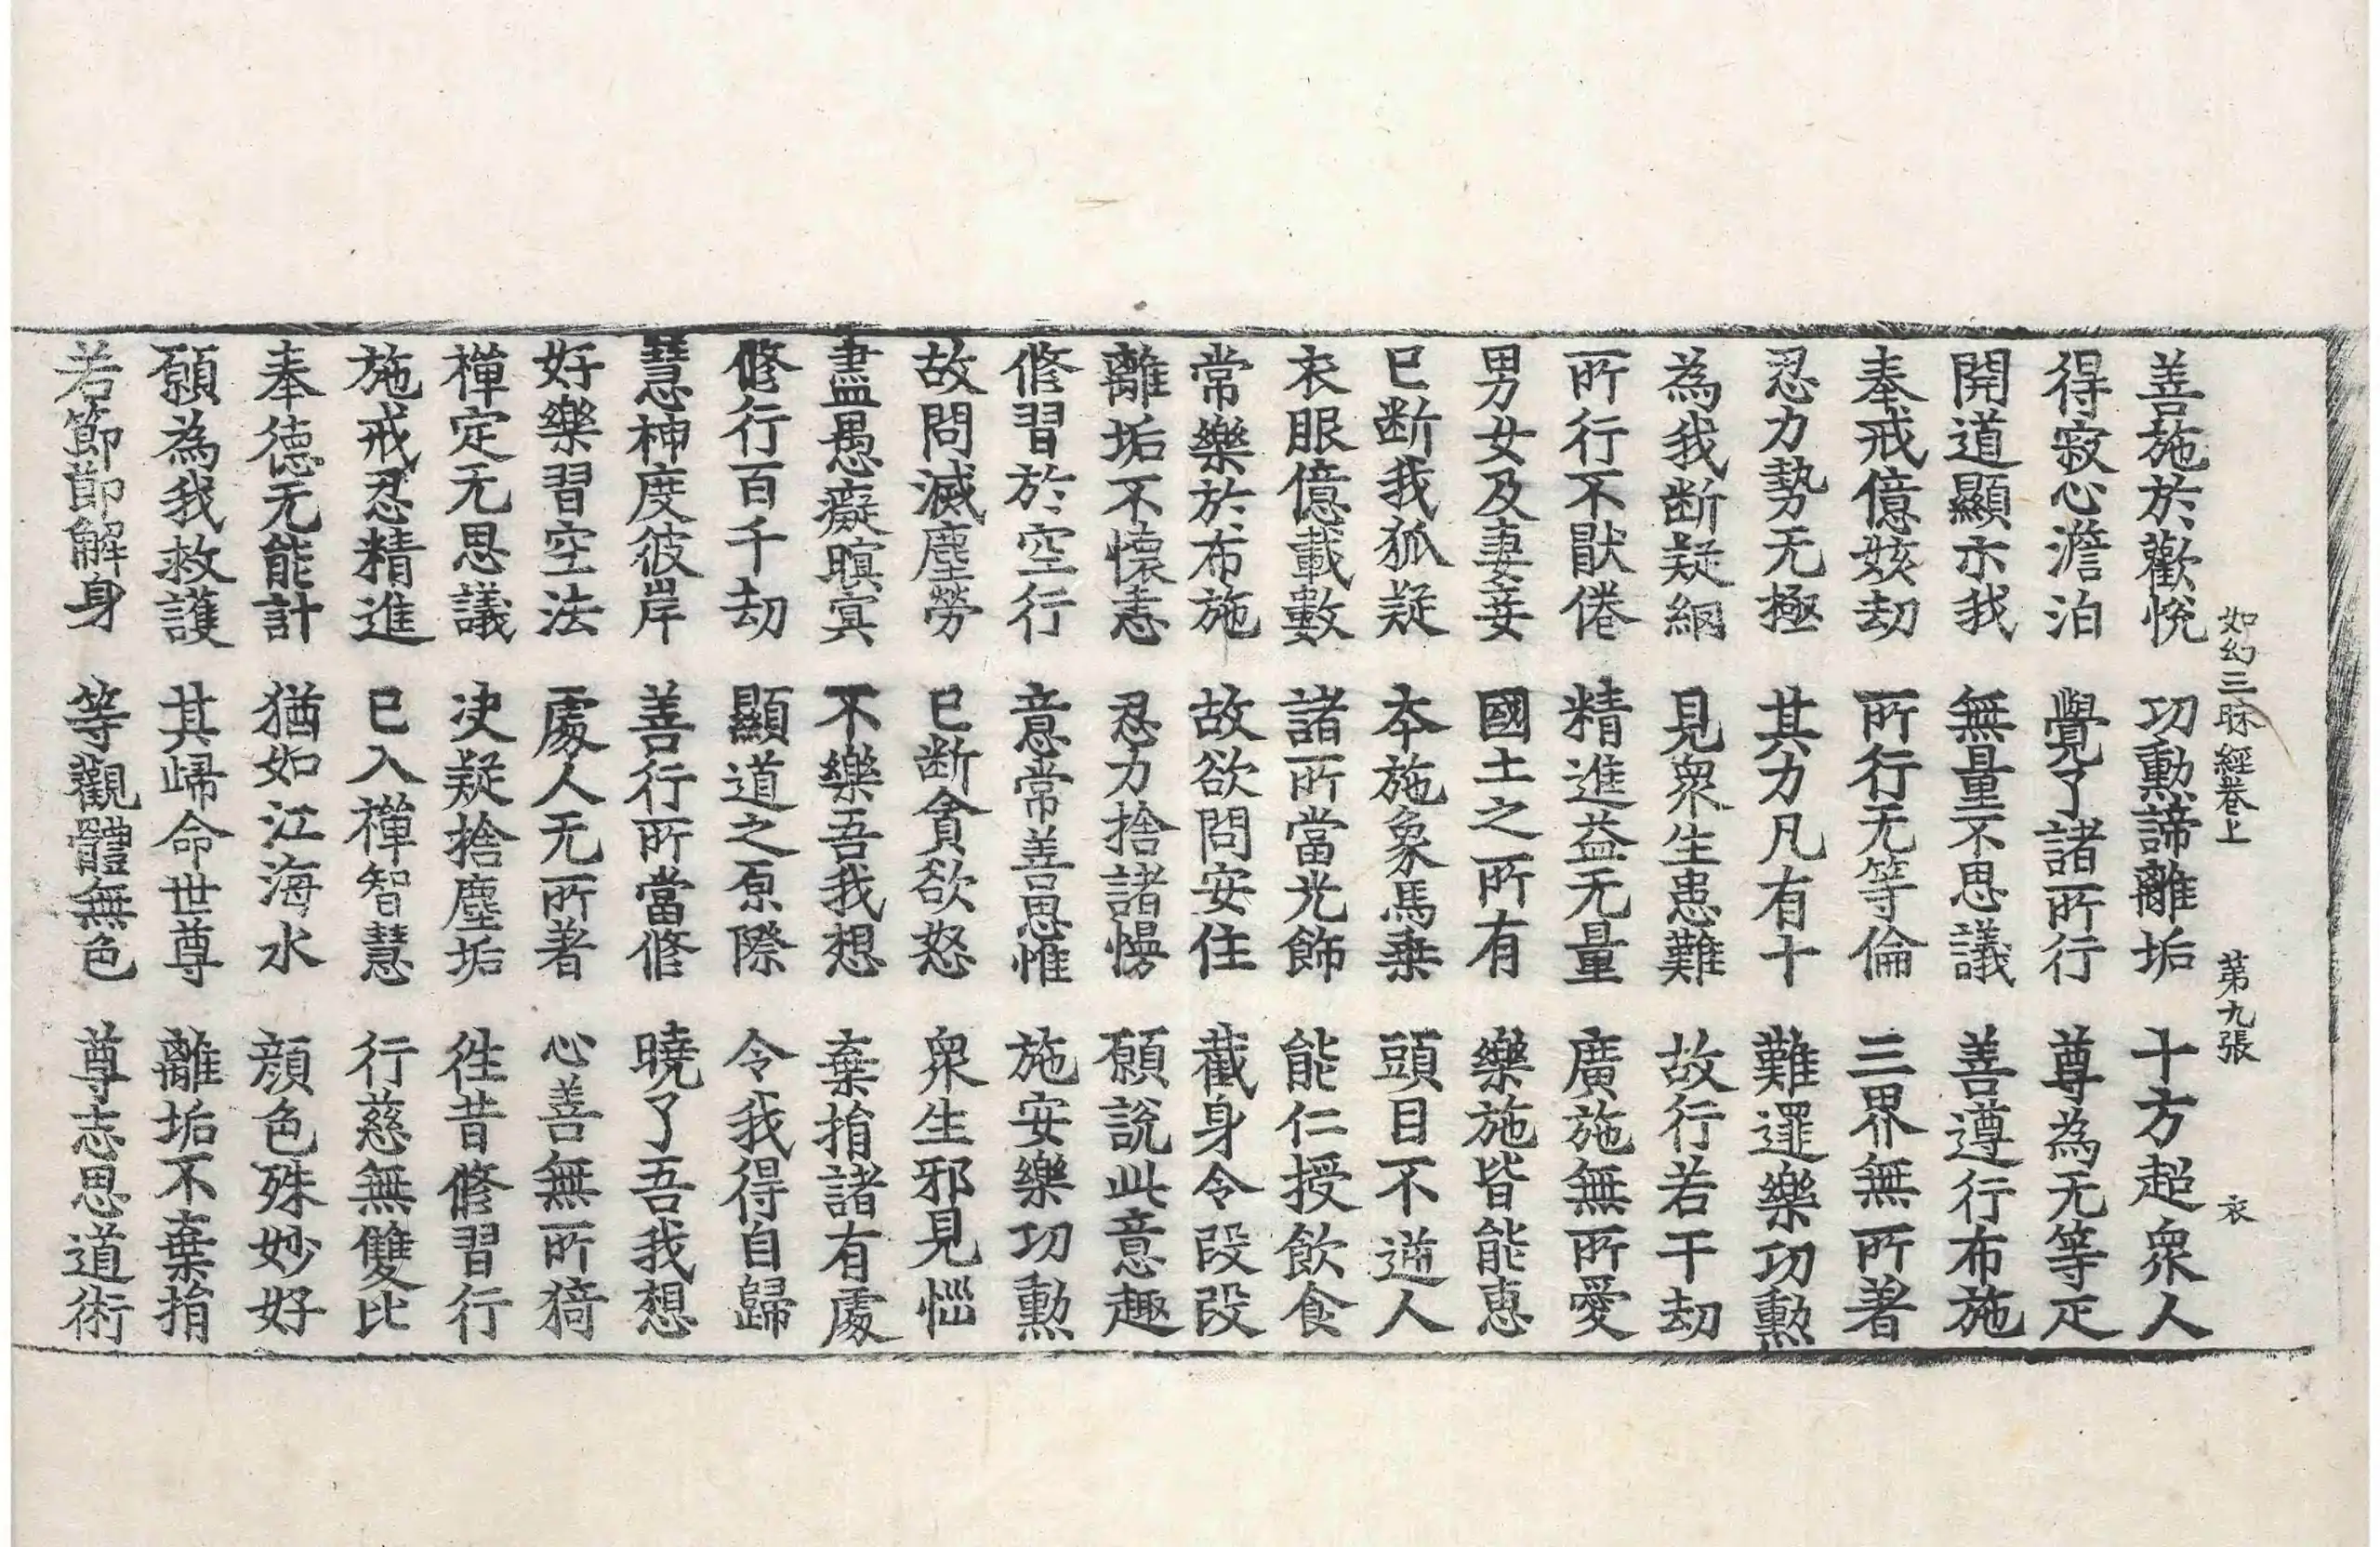 如幻三昧經卷上　第九張　衣
善施於歡悅　功勳諦離垢　十方超衆人
得寂心澹泊　覺了諸所行　尊為无等疋
開道顯示我　無量不思議　善遵行布施
奉戒億姟劫　所行无等倫　三界無所著
忍力勢无極　其力凡有十　難遝樂功勳
為我断疑網　見衆生患難　故行若干劫
所行不猒倦　精進益无量　廣施無所愛
男女及妻妾　國土之所有　樂施皆能惠
已断我狐疑　本施象馬乗　頭目不逆人
衣服億載數　諸所當光飾　能仁授飲食
常樂於布施　故欲問安住　截身令段段
離垢不懷恚　忍力捨諸慢　願說此意趣
修習於空行　意常善思惟　施安樂功勳
故問滅塵勞　已断貪欲怒　衆生邪見惱
盡愚癡瞑冥　不樂吾我想　棄捐諸有處
修行百千劫　顯道之原際　令我得自歸
慧神度彼岸　善行所當修　曉了吾我想
好樂習空法　處人无所著　心善無所猗
禅定无思議　决疑捨塵垢　徃昔修習行
施戒忍精進　已入禅智慧　行慈無雙比
奉德无能計　猶如江海水　顔色殊妙好
願為我救護　其歸命世尊　離垢不棄捐
若節節解身　等觀體無色　尊志思道術